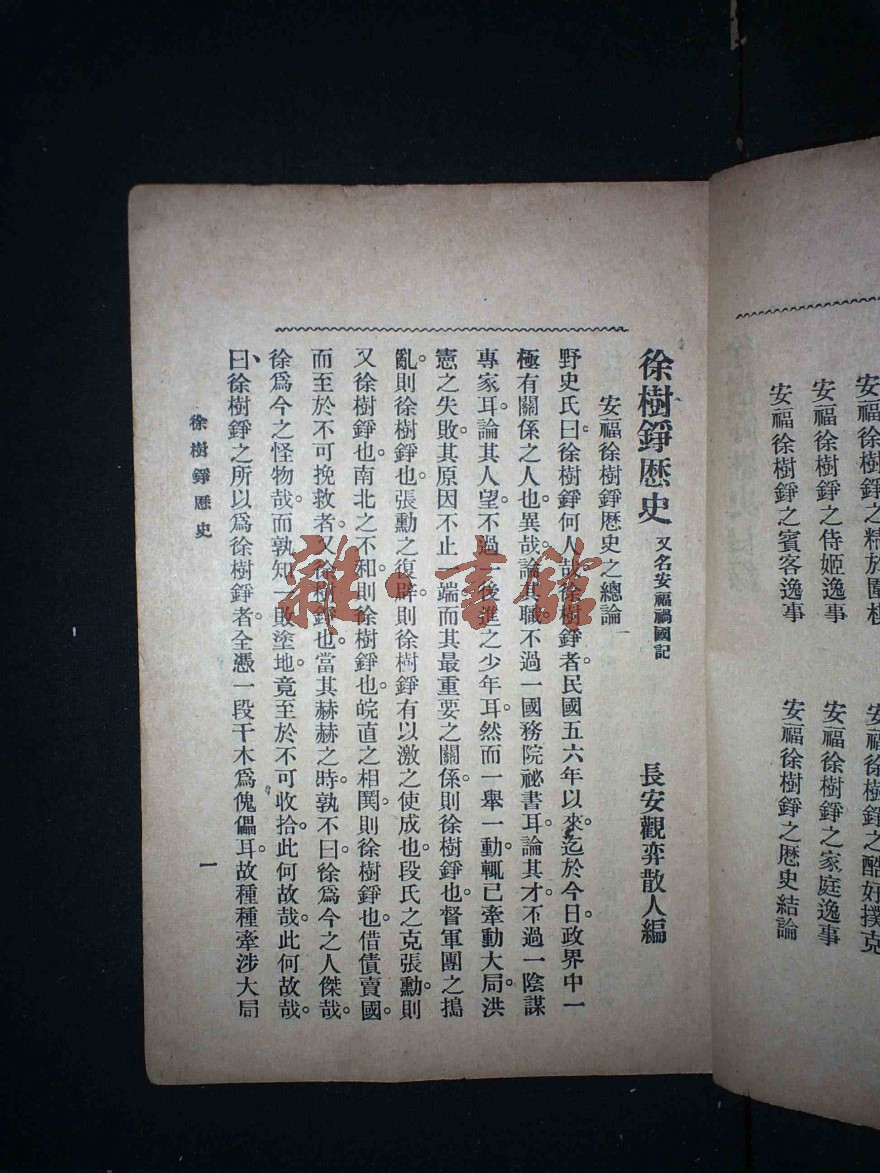 安福徐樹錚之精於圍棋
安福徐樹錚之酷好撲克
安福徐樹錚之侍姬逸事
安福徐樹錚之家庭逸事
安福徐樹錚之賓客逸事
安福徐樹錚之歷史結論
徐樹錚歷史 又名安福禍國記
長安觀弈散人編
安福徐樹錚歷史之總論
野史氏曰徐樹錚何人哉徐樹錚者民國五六年以來迄於今日政界中一
極有關係之人也異哉論其職不過一國務院祕書耳論其才不過一陰謀
專家耳論其人望不過一後進之少年耳然而一舉一動輒已牽動大局洪
憲之失敗其原因不止一端而其最重要之關係則徐樹錚也督軍團之搗
亂則徐樹錚也張勳之復辟則徐樹錚有以激之使成也段氏之克張勳則
又徐樹錚也南北之不和則徐樹錚也皖直之相鬨則徐樹錚也借債賣國
而至於不可挽救者又徐樹錚也當其赫赫之時孰不曰徐爲今之人傑哉
徐爲今之怪物哉而孰知一敗塗地竟至於不可收拾此何故哉此何故哉
曰徐樹錚之所以爲徐樹錚者全憑一段干木爲傀儡耳故種種牽涉大局
徐樹錚歷史
一
雜·書館